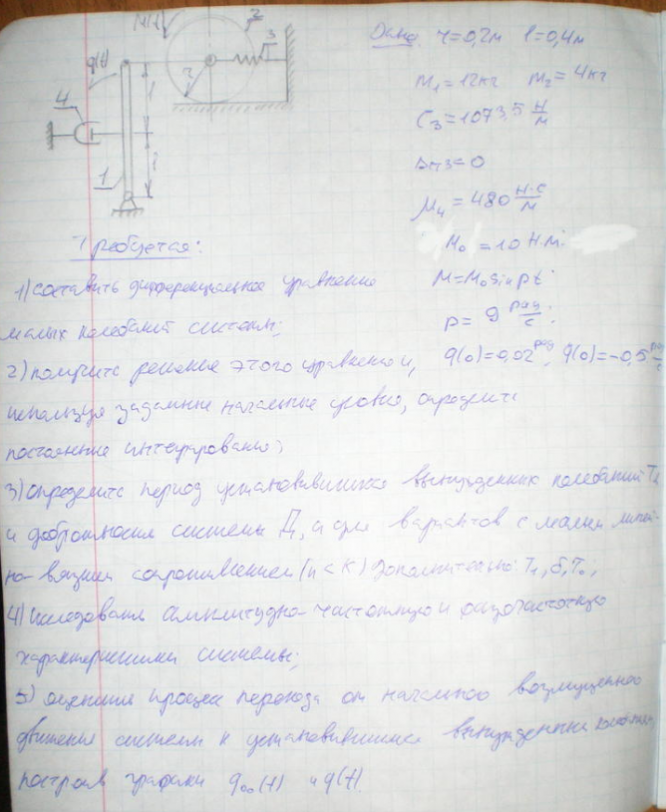 M(t) 2
3
Дано r=0,2м l=0,4м
q(t)
r
4
l
m₁=12кг m₂=4кг
C₃=1073,5 Н/м
l
1
Δст3=0
μ₄=480 Н·с/м
Требуется:
M₀=10 Н·м
1) составить дифференциальное уравнение
M=M₀sin pt
малых колебаний системы;
p=9 рад/с
2) получить решение этого уравнения и,
q(0)=0,02 рад, q̇(0)=-0,5 рад/с
используя заданные начальные условия, определить
постоянные интегрирования;
3) определить период установившихся вынужденных колебаний T
и добротность системы Д, а для вариантов с малым линей-
но-вязким сопротивлением (n<k) дополнительно: T₁, δ, T₀;
4) исследовать амплитудно-частотную и фазочастотную
характеристики системы;
5) оценить процесс перехода от начального возмущенного
движения системы к установившимся вынужденным колебаниям
построив графики q∞(t) и q(t).